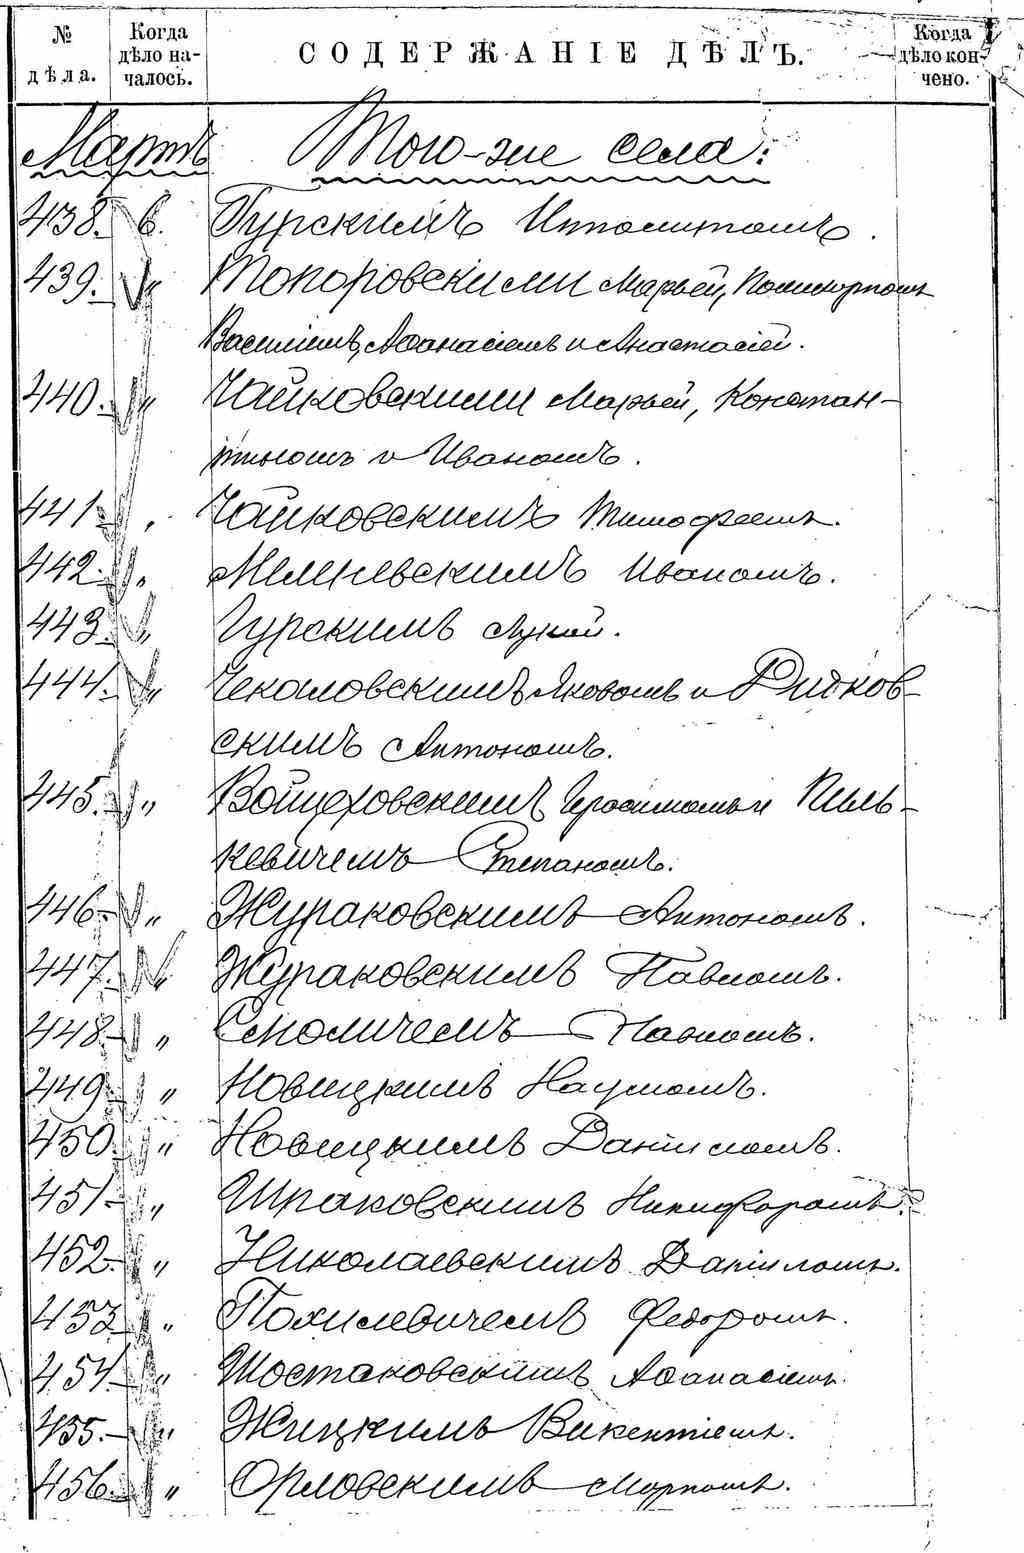 № дѣла. Когда дѣло началось. СОДЕРЖАНІЕ ДѢЛЪ. Когда дѣло кончено.
Мартъ Того-же села:
438. 6. Гурскимъ Ипполитомъ.
439. " Топоровскими Марьей, Поликарпомъ
Василіемъ, Аѳанасіемъ и Анастасіей.
440. " Чайковскими Марьей, Констан-
тиномъ и Иваномъ.
441. " Чайковскимъ Тимофеемъ.
442. " Мелневскимъ Иваномъ.
443. " Гурскимъ Лукой.
444. " Чекаловскимъ Яковомъ и Витков-
скимъ Антономъ.
445. " Войцеховскимъ Герасимомъ и Киль-
кевичемъ Степаномъ.
446. " Жураковскимъ Антономъ.
447. " Жураковскимъ Павломъ.
448. " Смоличемъ Павломъ.
449. " Новицкимъ Наумомъ.
450. " Новицкимъ Даніиломъ.
451. " Шпаковскимъ Никифоромъ.
452. " Николаевскимъ Даніиломъ.
453. " Похилевичемъ Федоромъ.
454. " Шостаковскимъ Аѳанасіемъ.
455. " Жицкимъ Викентіемъ.
456. " Орловскимъ Маркомъ.